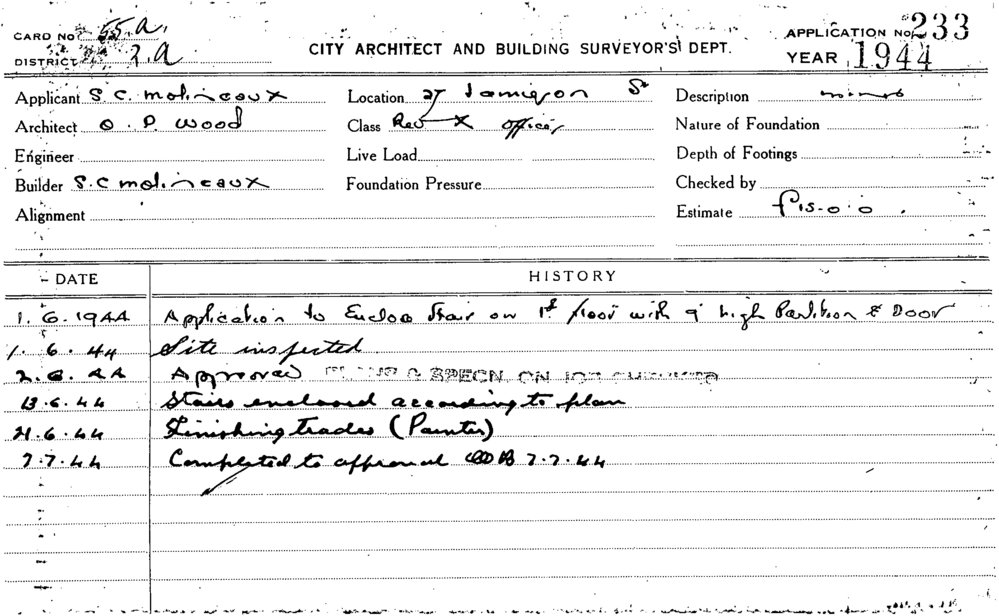 CARD No 55.a.
DISTRICT 2.a
CITY ARCHITECT AND BUILDING SURVEYOR'S DEPT.
APPLICATION No. 233
YEAR 1944
Applicant S. C. Molineaux
Location 27 Jamieson St
Description minor
Architect O. P. Wood
Class Res X offices
Nature of Foundation
Engineer
Live Load
Depth of Footings
Builder S. C Molineaux
Foundation Pressure
Checked by
Alignment
Estimate £15-0-0.
DATE HISTORY
1. 6. 1944 Application to Enclose Stair on 1st floor with 9' high Partition & Door
1. 6. 44 Site inspected
2. 6. 44 Approved PLANS & SPECN. ON JOB CHECKED
13. 6. 44 Stairs enclosed according to plan
21. 6. 44 Finishing trades (Painter)
7. 7. 44 Completed to approval 7. 7. 44